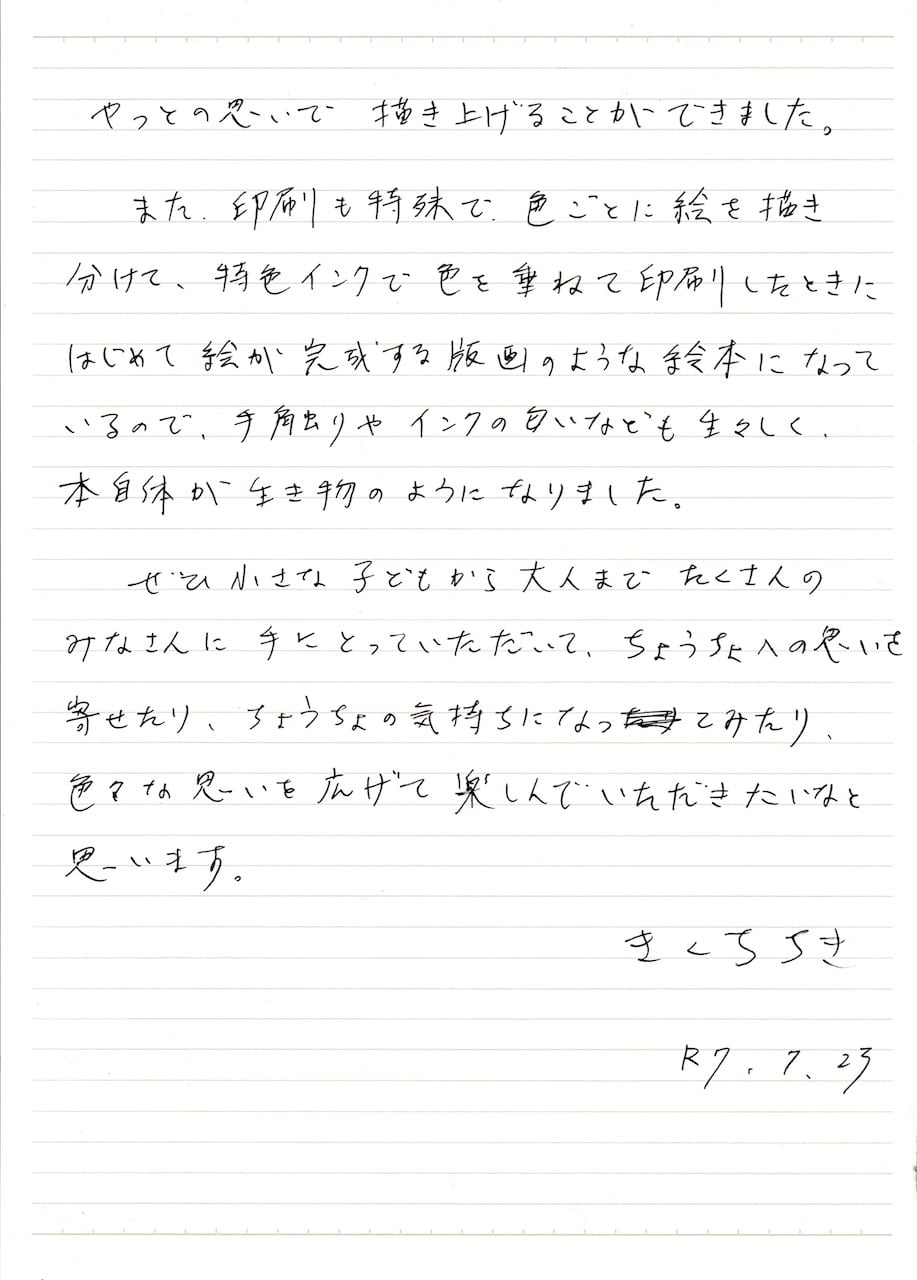 やっとの思いで 描き上げることができました。
また、印刷も特殊で、色ごとに絵を描き
分けて、特色インクで色を重ねて印刷したときに
はじめて絵が完成する版画のような絵本になって
いるので、手触りやインクの匂いなども生々しく、
本自体が生き物のようになりました。
ぜひ小さな子どもから大人までたくさんの
みなさんに手にとっていただいて、ちょうちょへの思いを
寄せたり、ちょうちょの気持ちになってみたり、
色々な思いを広げて楽しんでいただきたいなと
思います。
きくちちき
R7.7.23